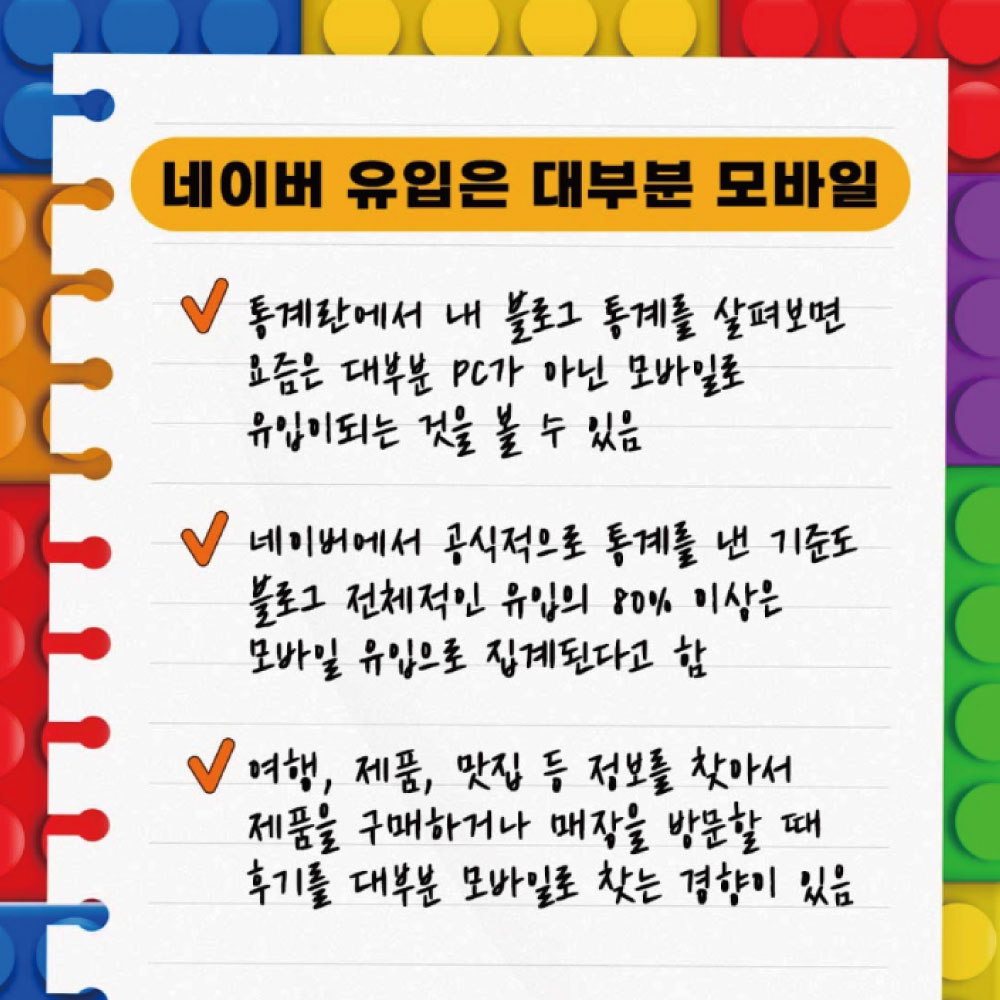 네이버 유입은 대부분 모바일
통계란에서 내 블로그 통계를 살펴보면
요즘은 대부분 PC가 아닌 모바일로
유입이되는 것을 볼 수 있음
네이버에서 공식적으로 통계를 낸 기준도
블로그 전체적인 유입의 80% 이상은
모바일 유입으로 집계된다고 함
여행, 제품, 맛집 등 정보를 찾아서
제품을 구매하거나 매장을 방문할 때
후기를 대부분 모바일로 찾는 경향이 있음